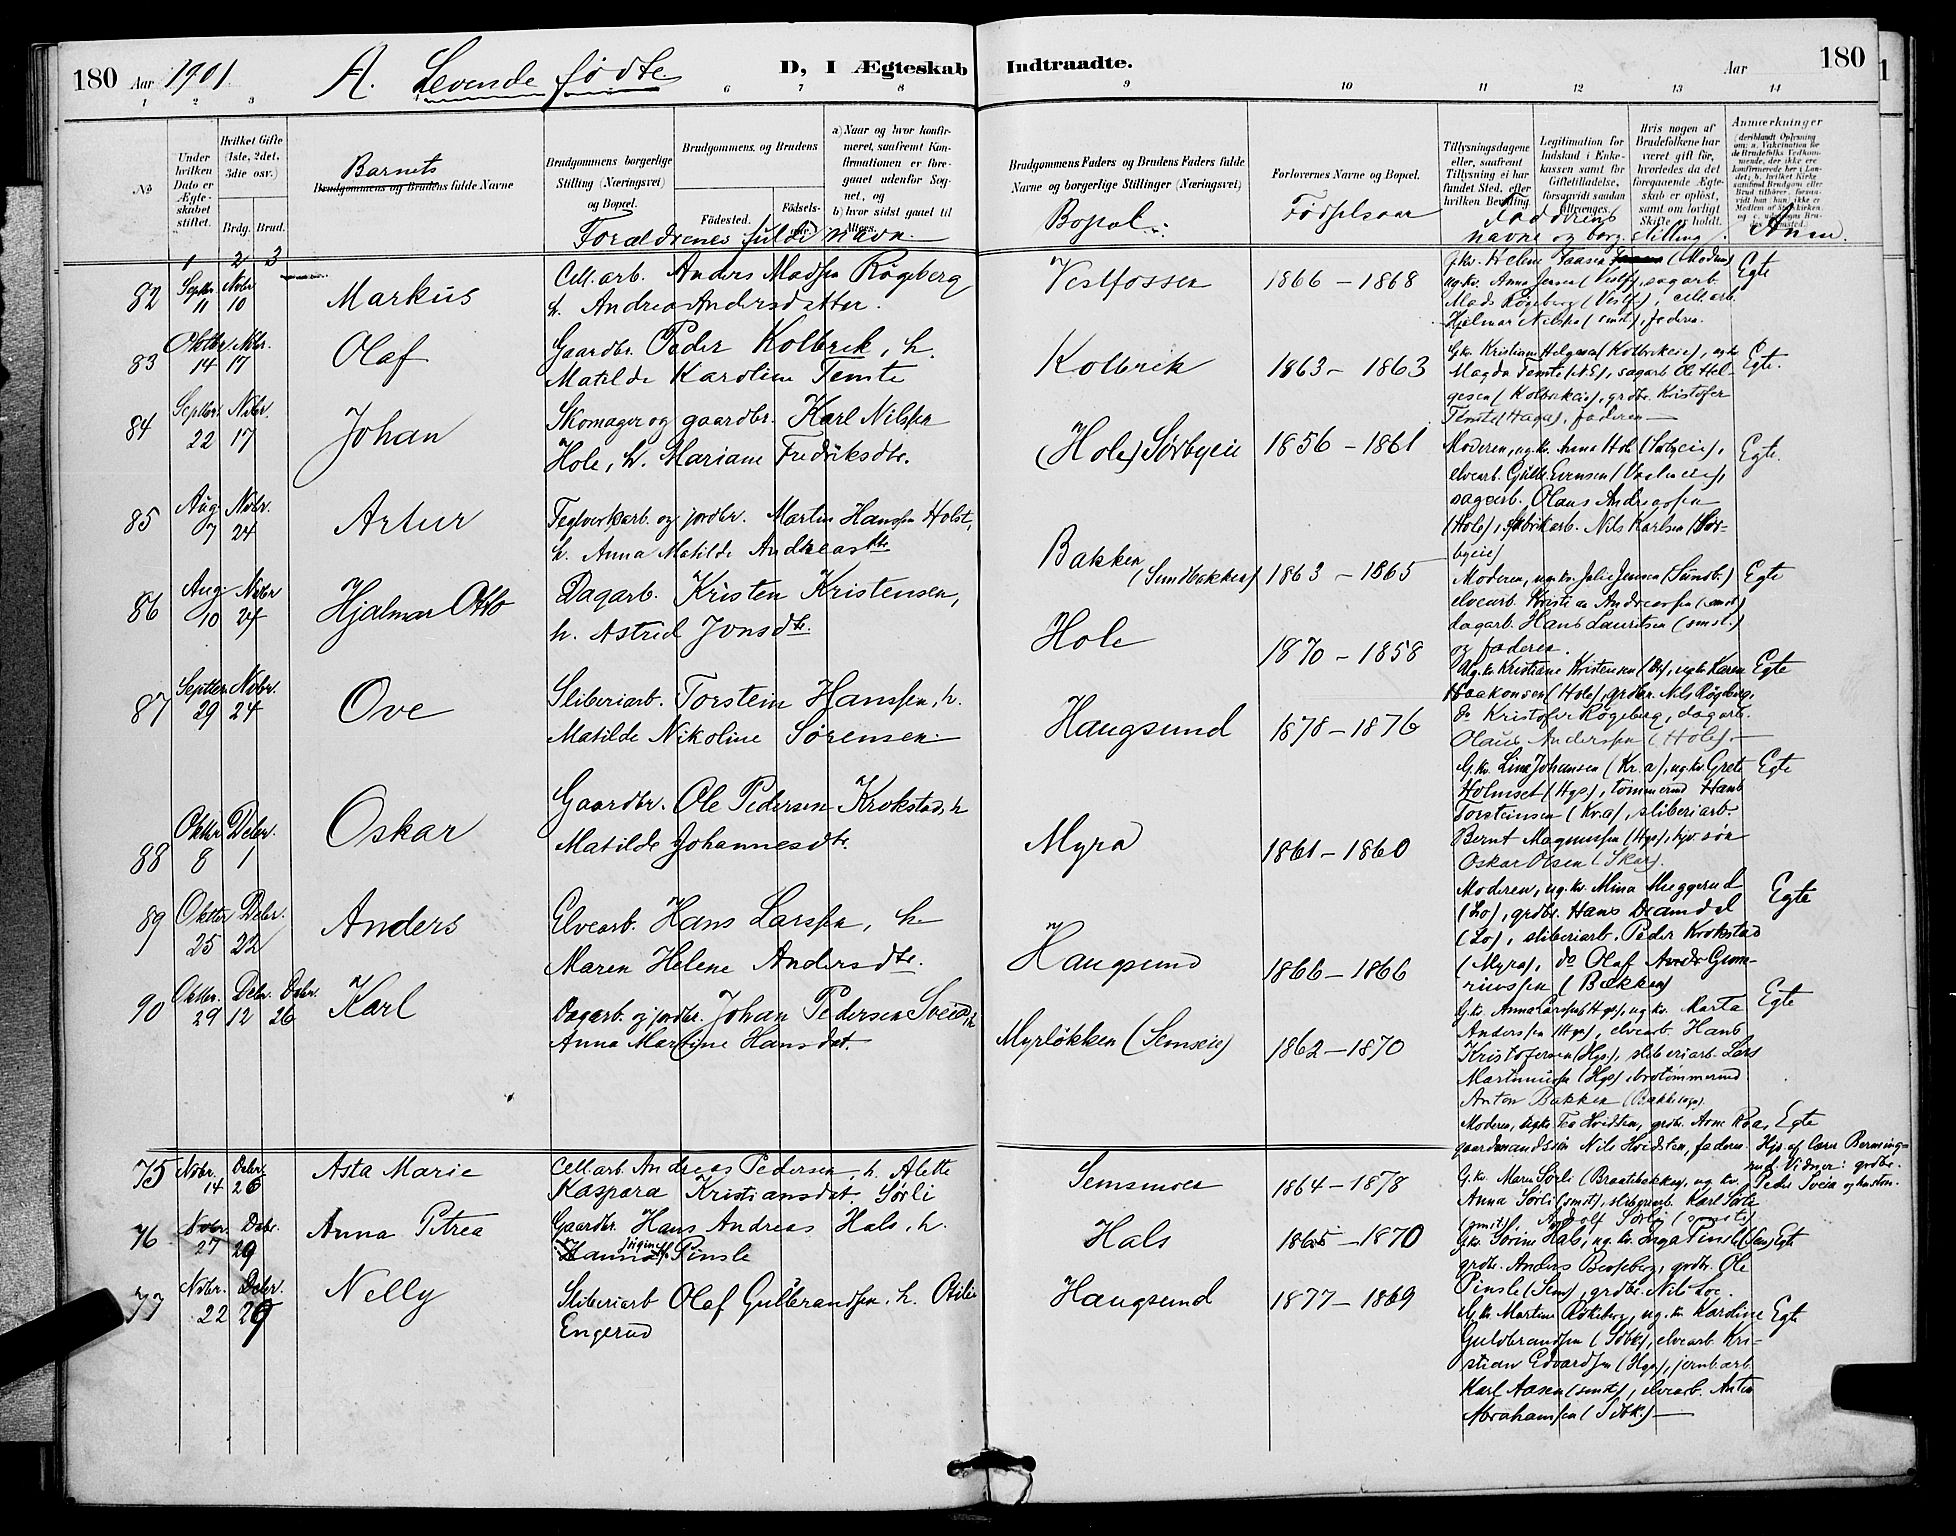 180 Aar 1901. A. Levende fødte. D, I Ægteskab Indtraadte. Aar 180
1 2 3 6 7 8 9 10 11 12 13 14
No
Under hvilken Dato er Ægteskabet stiftet.
Hvilket Gifte (1ste, 2det, 3die osv.)
Brdg. Brud.
Barnets
Brudgommens og Brudens fulde Navne
Brudgommens borgerlige Stilling (Næringsvei) og Bopæl.
Brudgommens og Brudens
Fødested.
Fødselsaar.
a) Naar og hvor konfirmeret, saafremt Konfirmationen er foregaaet udenfor Sognet, og
b) hvor sidst gaaet til Alters.
Forældrenes fulde navn.
Brudgommens Faders og Brudens Faders fulde Navne og borgerlige Stillinger (Næringsvei)
Bopæl.
Forlovernes Navne og Bopæl.
Fødselsaar
Tillysningsdagene eller, saafremt Tillysning ei har fundet Sted, efter hvilken Bevilling.
Legitimation for Indskud i Enkekassen samt for Giftetilladelse, forsaavidt saadan tiltrænges.
Hvis nogen af Brudefolkene har været gift før, hvorledes da det foregaaende Ægteskab er opløst, samt om lovligt Skifte er holdt.
Anmærkninger
Faddrenes
navne og borg. stilling.
Anm.
1 2 3
82 Septbr. 11 Nobr. 10 Markus
Cell.arb. Anders Madsen Røgeberg
h. Andrea Andersdatter.
Vestfossen 1866 – 1868
G.kv. Helene Paasen (Moden)
ug.kv. Anna Jensen (Vestf), sagarb.
Mads Røgeberg (Vestf), cell.arb.
Hjelmar Nilsen (smst), faderen.
Egte
83 Oktbr. 14 Nbr. 17 Olaf
Gaardbr. Peder Kolbrek, h.
Matilde Karoline Temte
Kolbrek 1863 – 1863
G.kv. Kristiane Helgesen (Kolbrekeie), ug.kv.
Magda Temte, sagarb. Ole Helgesen (Kolbrekeie), grdbr. Kristofer
Temte (Haga), faderen
Egte.
84 Septbr. 22 Nobr. 17 Johan
Skomager og gaardbr. Karl Nilsen
Hole, h. Mariane Fredriksdtr.
(Hole) Sørbyeie 1856 – 1861
Moderen, ug.kv. Anna Hole (Sørbyeie),
elvearb. Evensen
sagarb. Olaus Andreassen
(Hole), fabrikarb. Nils Karlsen (Sørbyeie)
Egte.
85 Aug. 7 Nobr. 24 Artur
Teglverkarb. og jordbr. Martin Hansen Holst,
h. Anna Matilde Andreasdtr.
Bakken (Sundbakken) 1863 – 1865
Moderen, ug.kv. Julie Jensen (Sundb.)
elvearb. Andreassen (smst)
dagarb. Hans Lauritsen (smst.)
og faderen.
Egte
86 Aug. 10 Nobr. 24 Hjalmar Otto
Dagarb. Kristen Kristensen,
h. Astrid Jonsdtr.
Hole 1870 – 1858
Ug.kv. Kristiane Kristensen, ug.kv. Karen
Haakonsen (Hole), grdbr. Nils Røgeberg,
do Kristofer Røgeberg, dagarb.
Olaus Andersen (Hole).
Egte
87 Septbr. 29 Nobr. 24 Ove
Sliberiarb. Torstein Hansen, h.
Matilde Nikoline Sørensen.
Haugsund 1878 – 1876
G.kv. Lina Johansen (Kr.a), ug.kv. Grete
Holmset (Hgs), tømmermd. Hans
Torsteinsen (Kr.a), sliberiarb.
Bernt Magnussen (Hgs), søn
Oskar Olsen (Skar).
Egte
88 Oktbr. 8 Debr. 1 Oskar
Gaardbr. Ole Pedersen Krokstad, h
Matilde Johannesdtr.
Myra 1861 – 1860
Moderen, ug.kv. Mina Muggerud
(Lo), grdbr. Hans Dramdal
(Lo), sliberiarb. Peder Krokstad
(Myra), do Olaf Gunneriussen (Bakken)
Egte
89 Oktbr. 25 Debr. 22 Anders
Elvearb. Hans Larsen, h
Maren Helene Andersdtr.
Haugsund 1866 – 1866
G.kv. Anna Larsen (Hgs), ug.kv. Marta
Andersen (Hgs), elvearb. Hans
Kristofersen (Hgs), sliberiarb. Lars
Martinusen (Hgs), brotømmermd.
Anton Bakken
Egte
90 Oktbr. 29 Debr. 12 Debr. 26 Karl
Dagarb. og jordbr. Johan Pedersen Sveia, h
Anna Martine Hansdat.
Myrløkken (Semseie) 1862 – 1870
Moderen, ug.kv. Tea Hvidsten, grdbr. Arne Roa,
gaardmandssøn Nils Hvidsten, faderen
Egte
Hjd. af lærer
Vidner: grdbr.
Peder Sveia og hustru.
75 Nobr. 14 Debr. 26 Asta Marie
Cell.arb. Andreas Pedersen, h. Alette
Kaspara Kristiansdat. Sørli
Semsmoen 1864 – 1878
G.kv. Maren Sørli (Braatebakken), ug.kv.
Anna Sørli (smst), sliberiarb. Karl Sørli
(smst), Adolf Sørli (smst)
76 Nobr. 27 Debr. 29 Anna Petrea
Gaardbr. Hans Andreas Hals, h.
Pinsle
Hals 1865 – 1870
G.kv. Sorine Hals, ug.kv. Inga Pinsle (Sem)
grdbr. Anders Berseberg, grdbr. Ole
Pinsle (Sem), grdbr. Nils Loe.
Egte
77 Nobr. 22 Debr. 29 Nelly
Sliberiarb Olaf Gulbrandsen, h. Otilie
Engerud
Haugsund 1877 – 1869
G.kv. Martine Røkeberg, ug.kv. Karoline
Gulbrandsen (Sdbk), elvearb. Kristian Edvardsen (Hgs), jernb.arb.
Karl Aasen (smst), elvearb. Anton
Abrahamsen (Sdbk.)
Egte